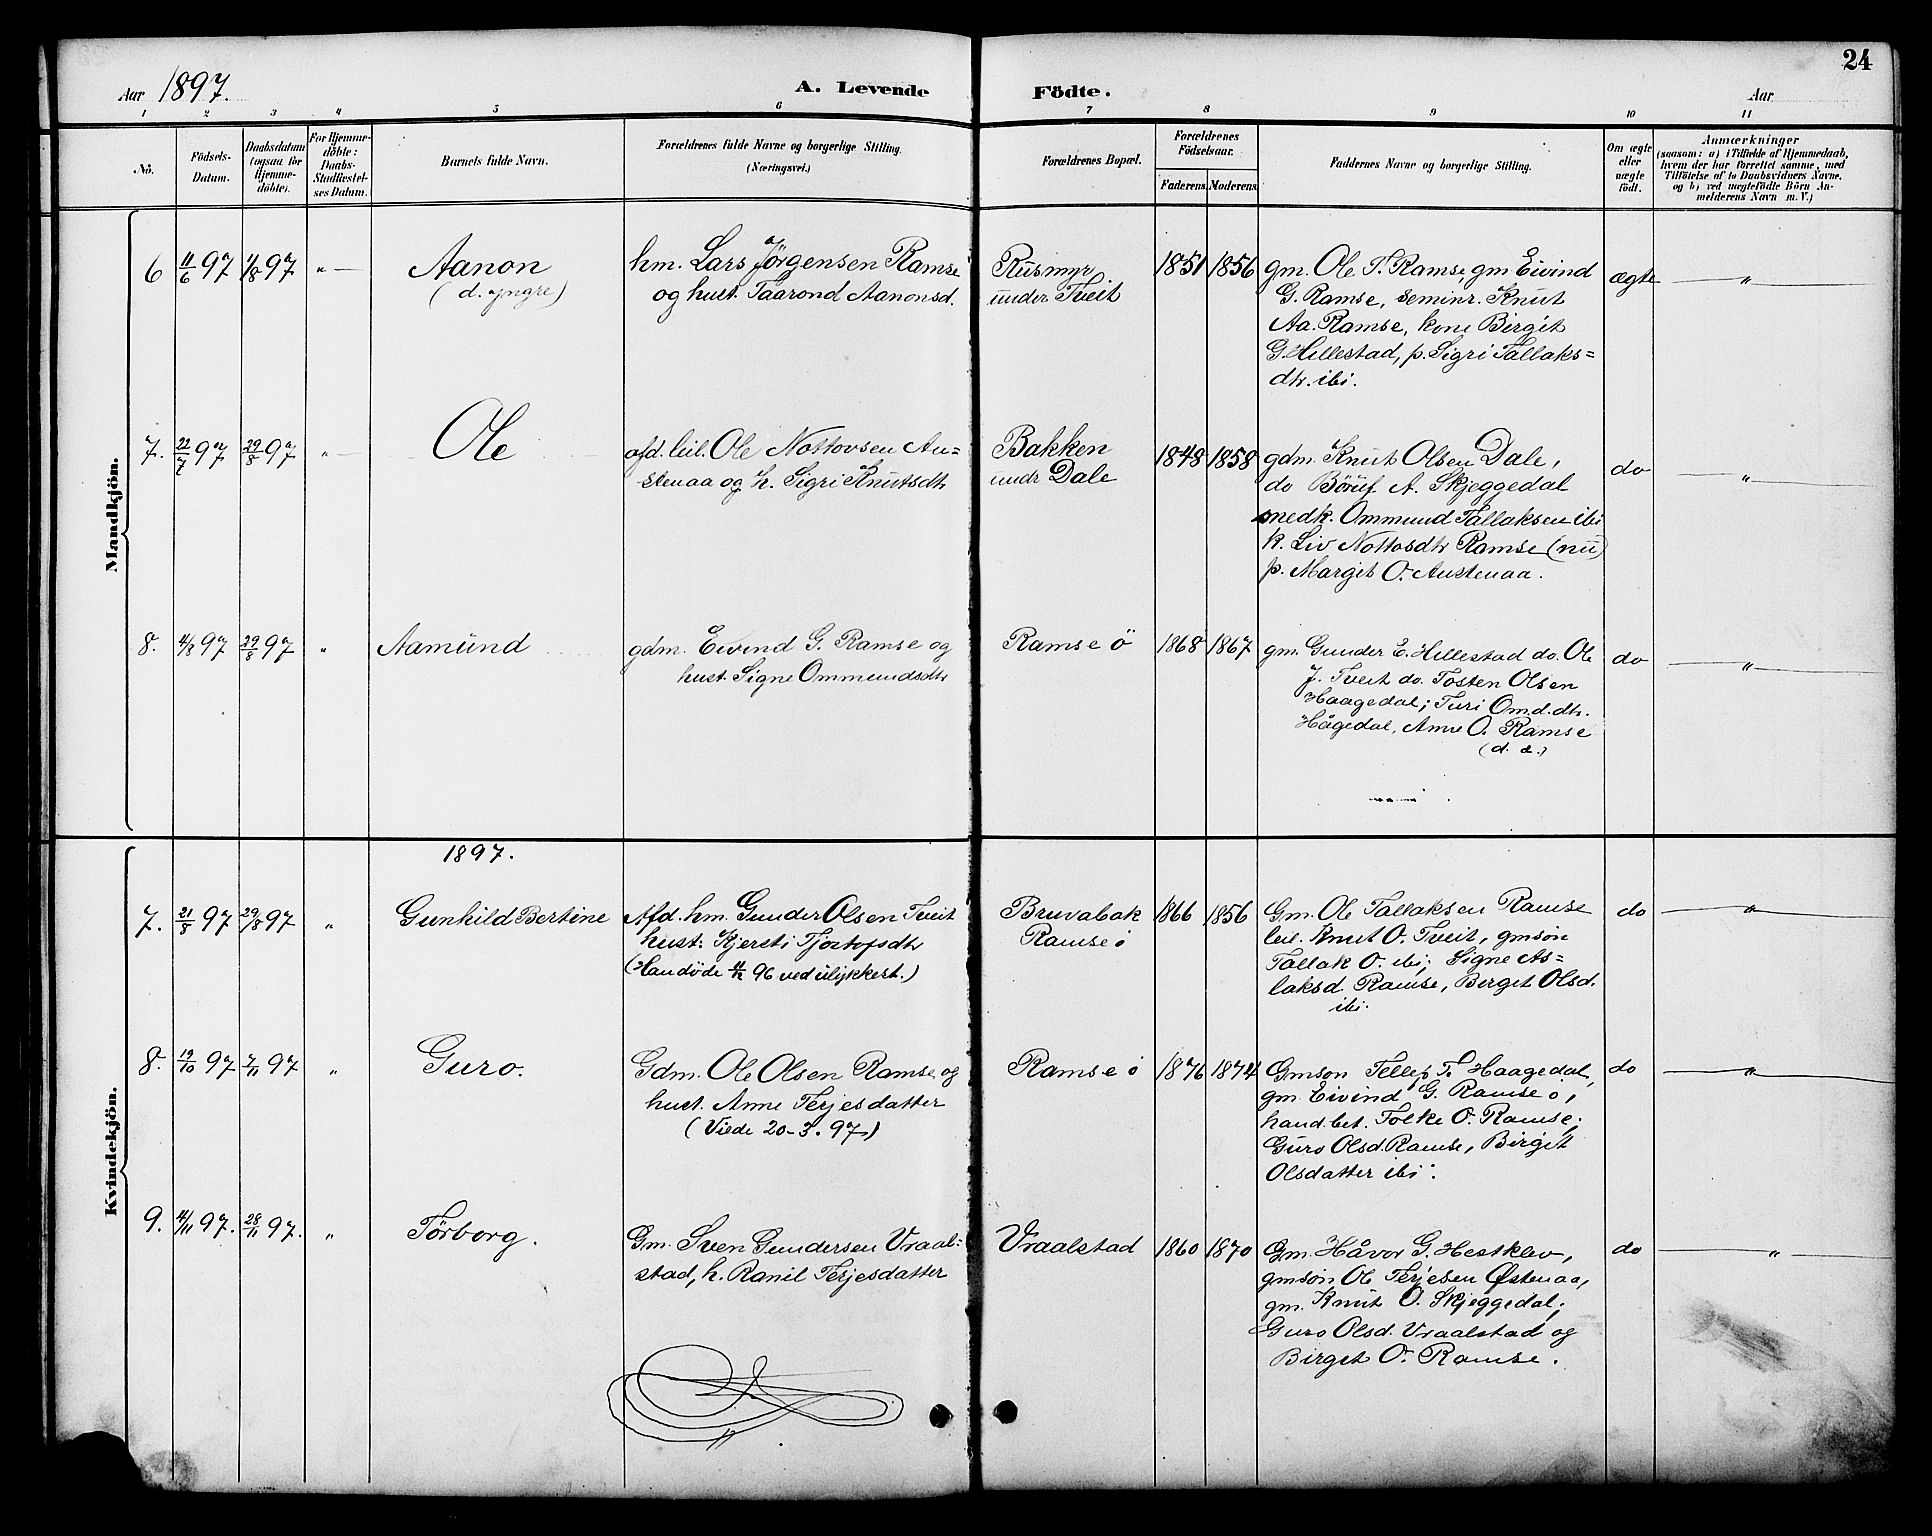 24
Aar 1897.
A. Levende Födte.
Aar
1 2 3 4 5 6 7 8 9 10 11
No.
Födsels-
Datum.
Daabsdatum
(ogsaa for
Hjemme-
döbte).
For Hjemme-
döbte:
Daabs-
Stadfæstel-
ses Datum.
Barnets fulde Navn.
Forældrenes fulde Navne og borgerlige Stilling.
(Næringsvei.)
Forældrenes Bopæl.
Forældrenes
Födselsaar.
Faderens. Moderens.
Faddernes Navne og borgerlige Stilling.
Om ægte
eller
uægte
födt.
Anmærkninger
(saasom: a) i Tilfælde af Hjemmedaab,
hvem der har forrettet samme, med
Tilföielse af to Daabsvidners Navne,
og b) ved uægtefödte Börn An-
melderens Navn m. V.)
Mandkjön.
6 11/6 97 1/8 97 "
Aanon
(d. yngre)
hm. Lars Jörgensen Ramse
og hust. Taarond Aanonsd.
Rusmyr
under Tveit
1851 1856
gm. Ole T. Ramse, gm Eivind
G. Ramse, seminr. Knut
Aa. Ramse, kone Birgit
G. Hillestad, p. Sigri Tallaks=
dtr. ibi.
ægte "
7. 22/7 97 29/8 97 "
Ole
afd. leil. Ole Nottovsen Au=
stenaa og h. Sigri Knutsdtr
Bakken
undr Dale
1848 1858
gdm. Knut Olsen Dale,
do Böruf A. Skjeggedal
snedk. Ommund Tallaksen ibi
k. Liv Nottosdtr Ramse
p. Margit O. Austenaa.
do "
8. 4/8 97 29/8 97 "
Aamund
gdm. Eivind G. Ramse og
hust. Signe Ommundsdtr
Ramse ö
1868 1867
gm. Gunder E. Hillestad do. Ole
J. Tveit do. Tosten Olsen
Haagedal; Turi Om.d.dtr.
Hågedal, Anne O. Ramse
do "
Kvindekjön.
1897.
7. 21/8 97 29/8 97 "
Gunhild Bertine
Afd. hm. Gunder Olsen Tveit
hust. Kjersti Tjostofsdtr
(Han döde 4/12 96 ved ulykkest.)
Bruvabak
Ramse ö
1866 1856
Gm. Ole Tallaksen Ramse
leil. Knut O. Tveit, gmsön
Tallak O. ibi; Signe As=
laksd. Ramse, Berget Olsd.
ibi.
do "
8. 19/10 97 7/11 97 "
Guro.
Gdm. Ole Olsen Ramse og
hust. Anne Terjesdatter
(Viede 20-3.97)
Ramse ö
1876 1874
Gmson Tellef T. Haagedal,
gm. Eivind G. Ramse ö,
hand.bet. Folke O. Ramse;
Guro Olsd. Ramse, Birgit
Olsdatter ibi.
do "
9. 4/11 97. 28/11 97. "
Törborg.
Gm. Sven Gundersen Vraal=
stad, h. Ranil Terjesdatter
Vraalstad
1860 1870
Gm. Håvor G. Hestklev,
gmsön Ole Terjesen Østenaa,
gm. Knut O. Skjeggedal;
Guro Olsd. Vraalstad og
Birget O. Ramse.
do "